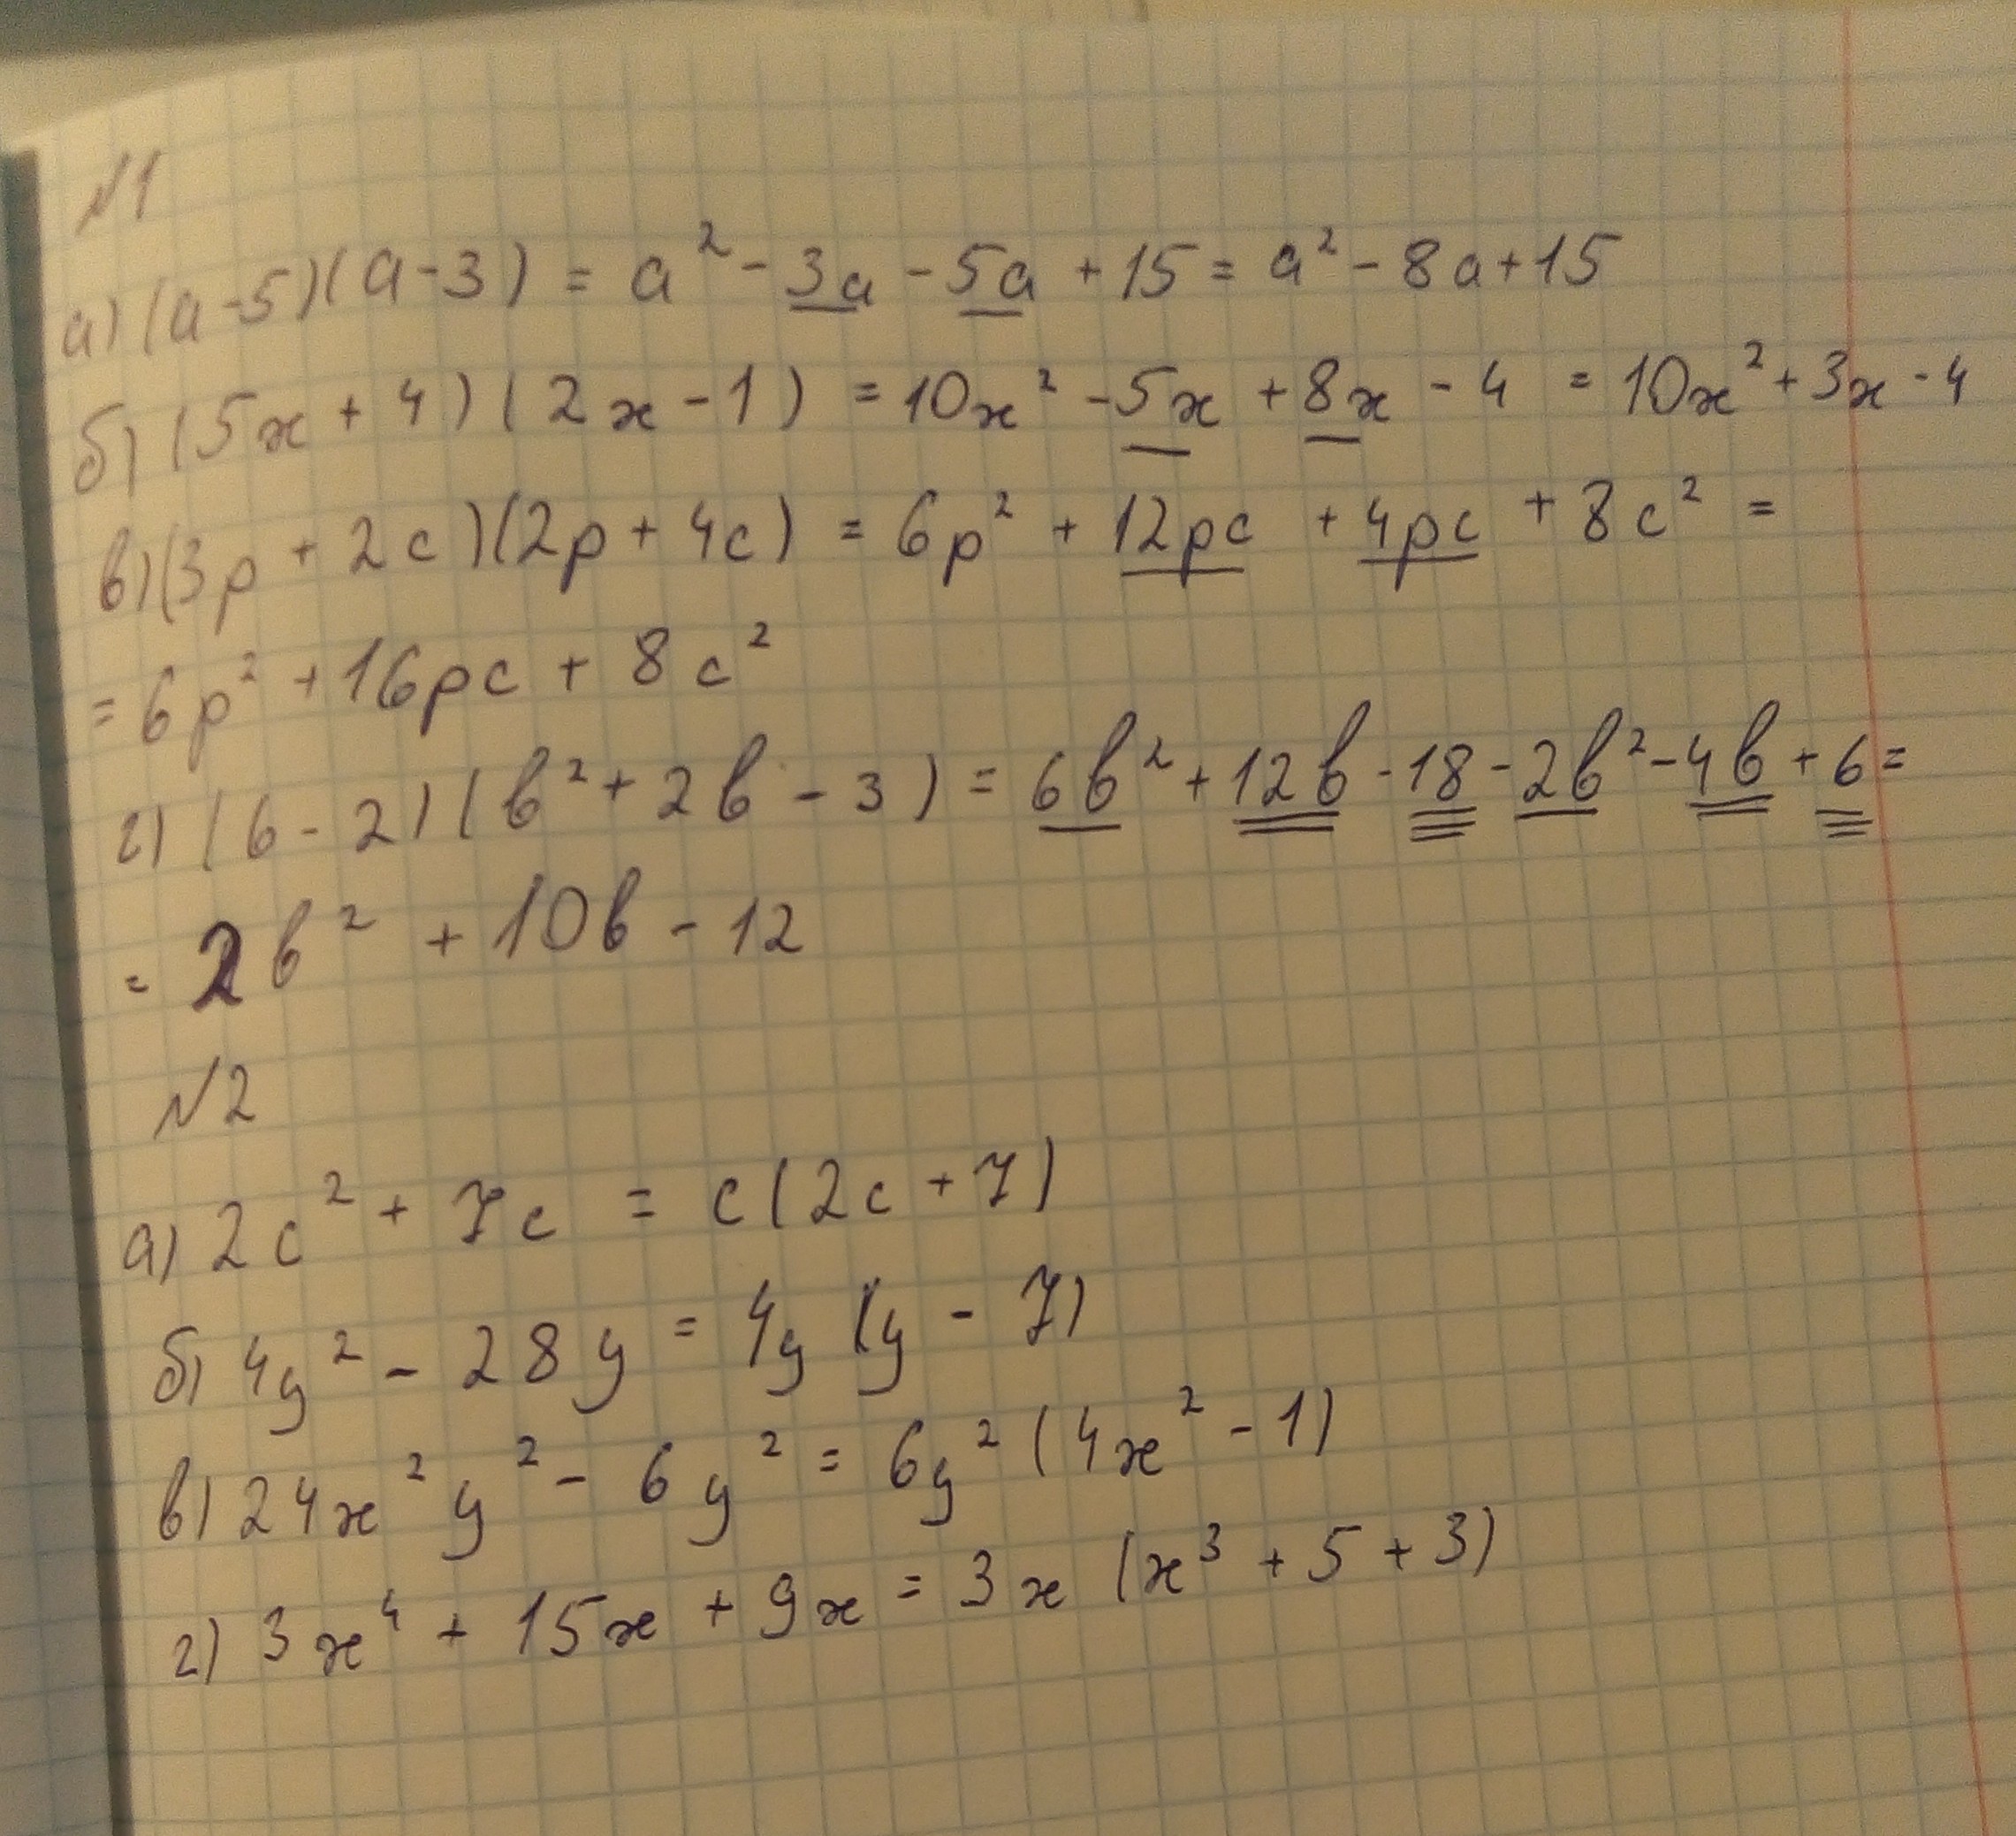 №1
а) (a-5)(a-3) = a² - 3a - 5a + 15 = a² - 8a + 15
б) (5x + 4)(2x - 1) = 10x² - 5x + 8x - 4 = 10x² + 3x - 4
в) (3p + 2c)(2p + 4c) = 6p² + 12pc + 4pc + 8c² =
= 6p² + 16pc + 8c²
г) (6 - 2)(b² + 2b - 3) = 6b² + 12b - 18 - 2b² - 4b + 6 =
= 2b² + 10b - 12
№2
а) 2c² + 7c = c(2c + 7)
б) 4y² - 28y = 4y (y - 7)
в) 24x²y² - 6y² = 6y² (4x² - 1)
г) 3x⁴ + 15x + 9x = 3x (x³ + 5 + 3)